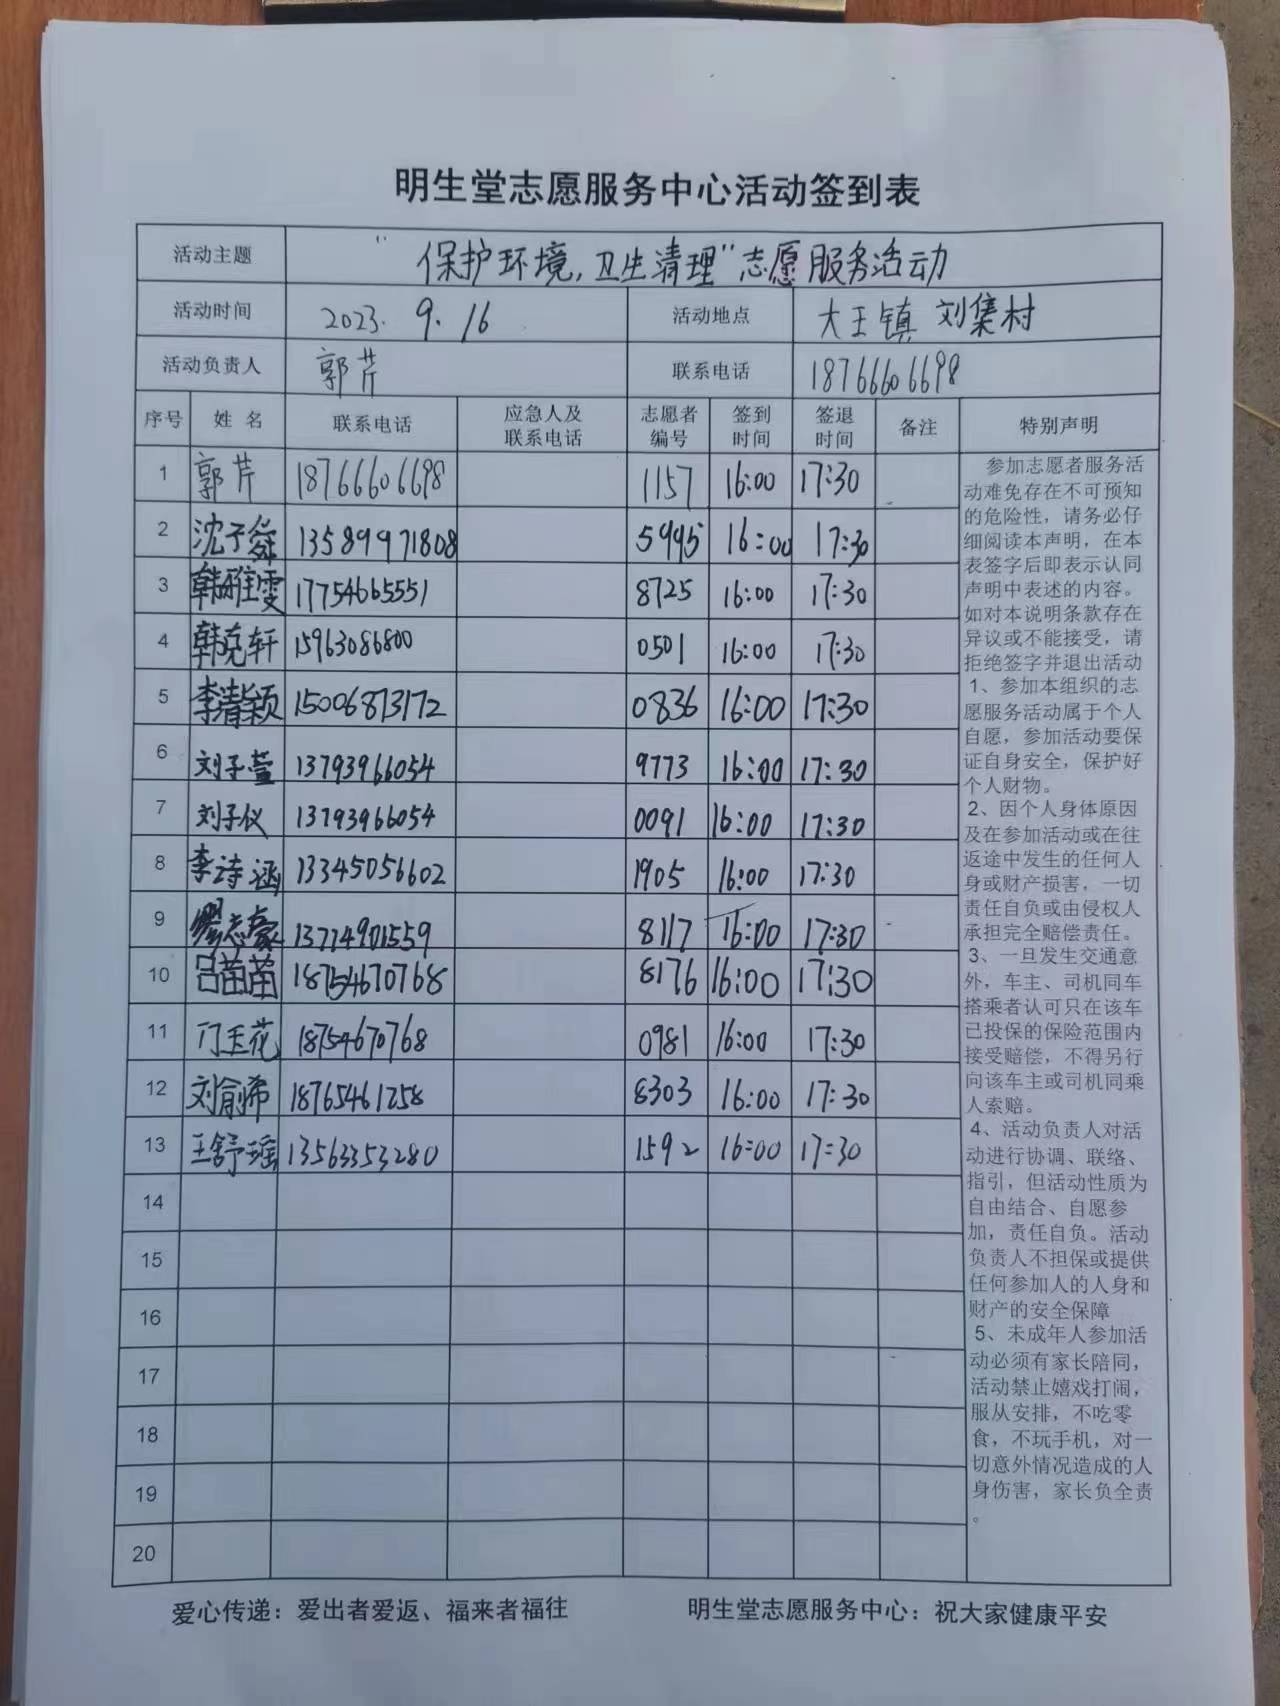 明生堂志愿服务中心活动签到表
活动主题 “保护环境,卫生清理”志愿服务活动
活动时间 2023. 9. 16 活动地点 大王镇 刘集村
活动负责人 郭芹 联系电话 18766606698
序号 姓名 联系电话 应急人及联系电话 志愿者编号 签到时间 签退时间 备注 特别声明
1 郭芹 18766606698 1157 16:00 17:30
2 沈子舜 13589971808 5995 16:00 17:30
3 韩雅雯 17754665551 8725 16:00 17:30
4 韩克轩 15963086800 0501 16:00 17:30
5 李清颖 15006873172 0836 16:00 17:30
6 刘子萱 13793966054 9773 16:00 17:30
7 刘子仪 13793966054 0091 16:00 17:30
8 李诗涵 13345056602 1905 16:00 17:30
9 志豪 13774901559 8117 16:00 17:30
10 吕苗苗 18754670768 8176 16:00 17:30
11 门玉花 18754670768 0981 16:00 17:30
12 刘俞希 18765461258 8303 16:00 17:30
13 王舒瑶 13563353280 1592 16:00 17:30
14
15
16
17
18
19
20
参加志愿者服务活
动难免存在不可预知
的危险性，请务必仔
细阅读本声明，在本
表签字后即表示认同
声明中表述的内容。
如对本说明条款存在
异议或不能接受，请
拒绝签字并退出活动
1、参加本组织的志
愿服务活动属于个人
自愿，参加活动要保
证自身安全，保护好
个人财物。
2、因个人身体原因
及在参加活动或在往
返途中发生的任何人
身或财产损害，一切
责任自负或由侵权人
承担完全赔偿责任。
3、一旦发生交通意
外，车主、司机同车
搭乘者认可只在该车
已投保的保险范围内
接受赔偿，不得另行
向该车主或司机同乘
人索赔。
4、活动负责人对活
动进行协调、联络、
指引，但活动性质为
自由结合、自愿参
加，责任自负。活动
负责人不担保或提供
任何参加人的人身和
财产的安全保障
5、未成年人参加活
动必须有家长陪同，
活动禁止嬉戏打闹，
服从安排，不吃零
食，不玩手机，对一
切意外情况造成的人
身伤害，家长负全责
。
爱心传递：爱出者爱返、福来者福往 明生堂志愿服务中心：祝大家健康平安